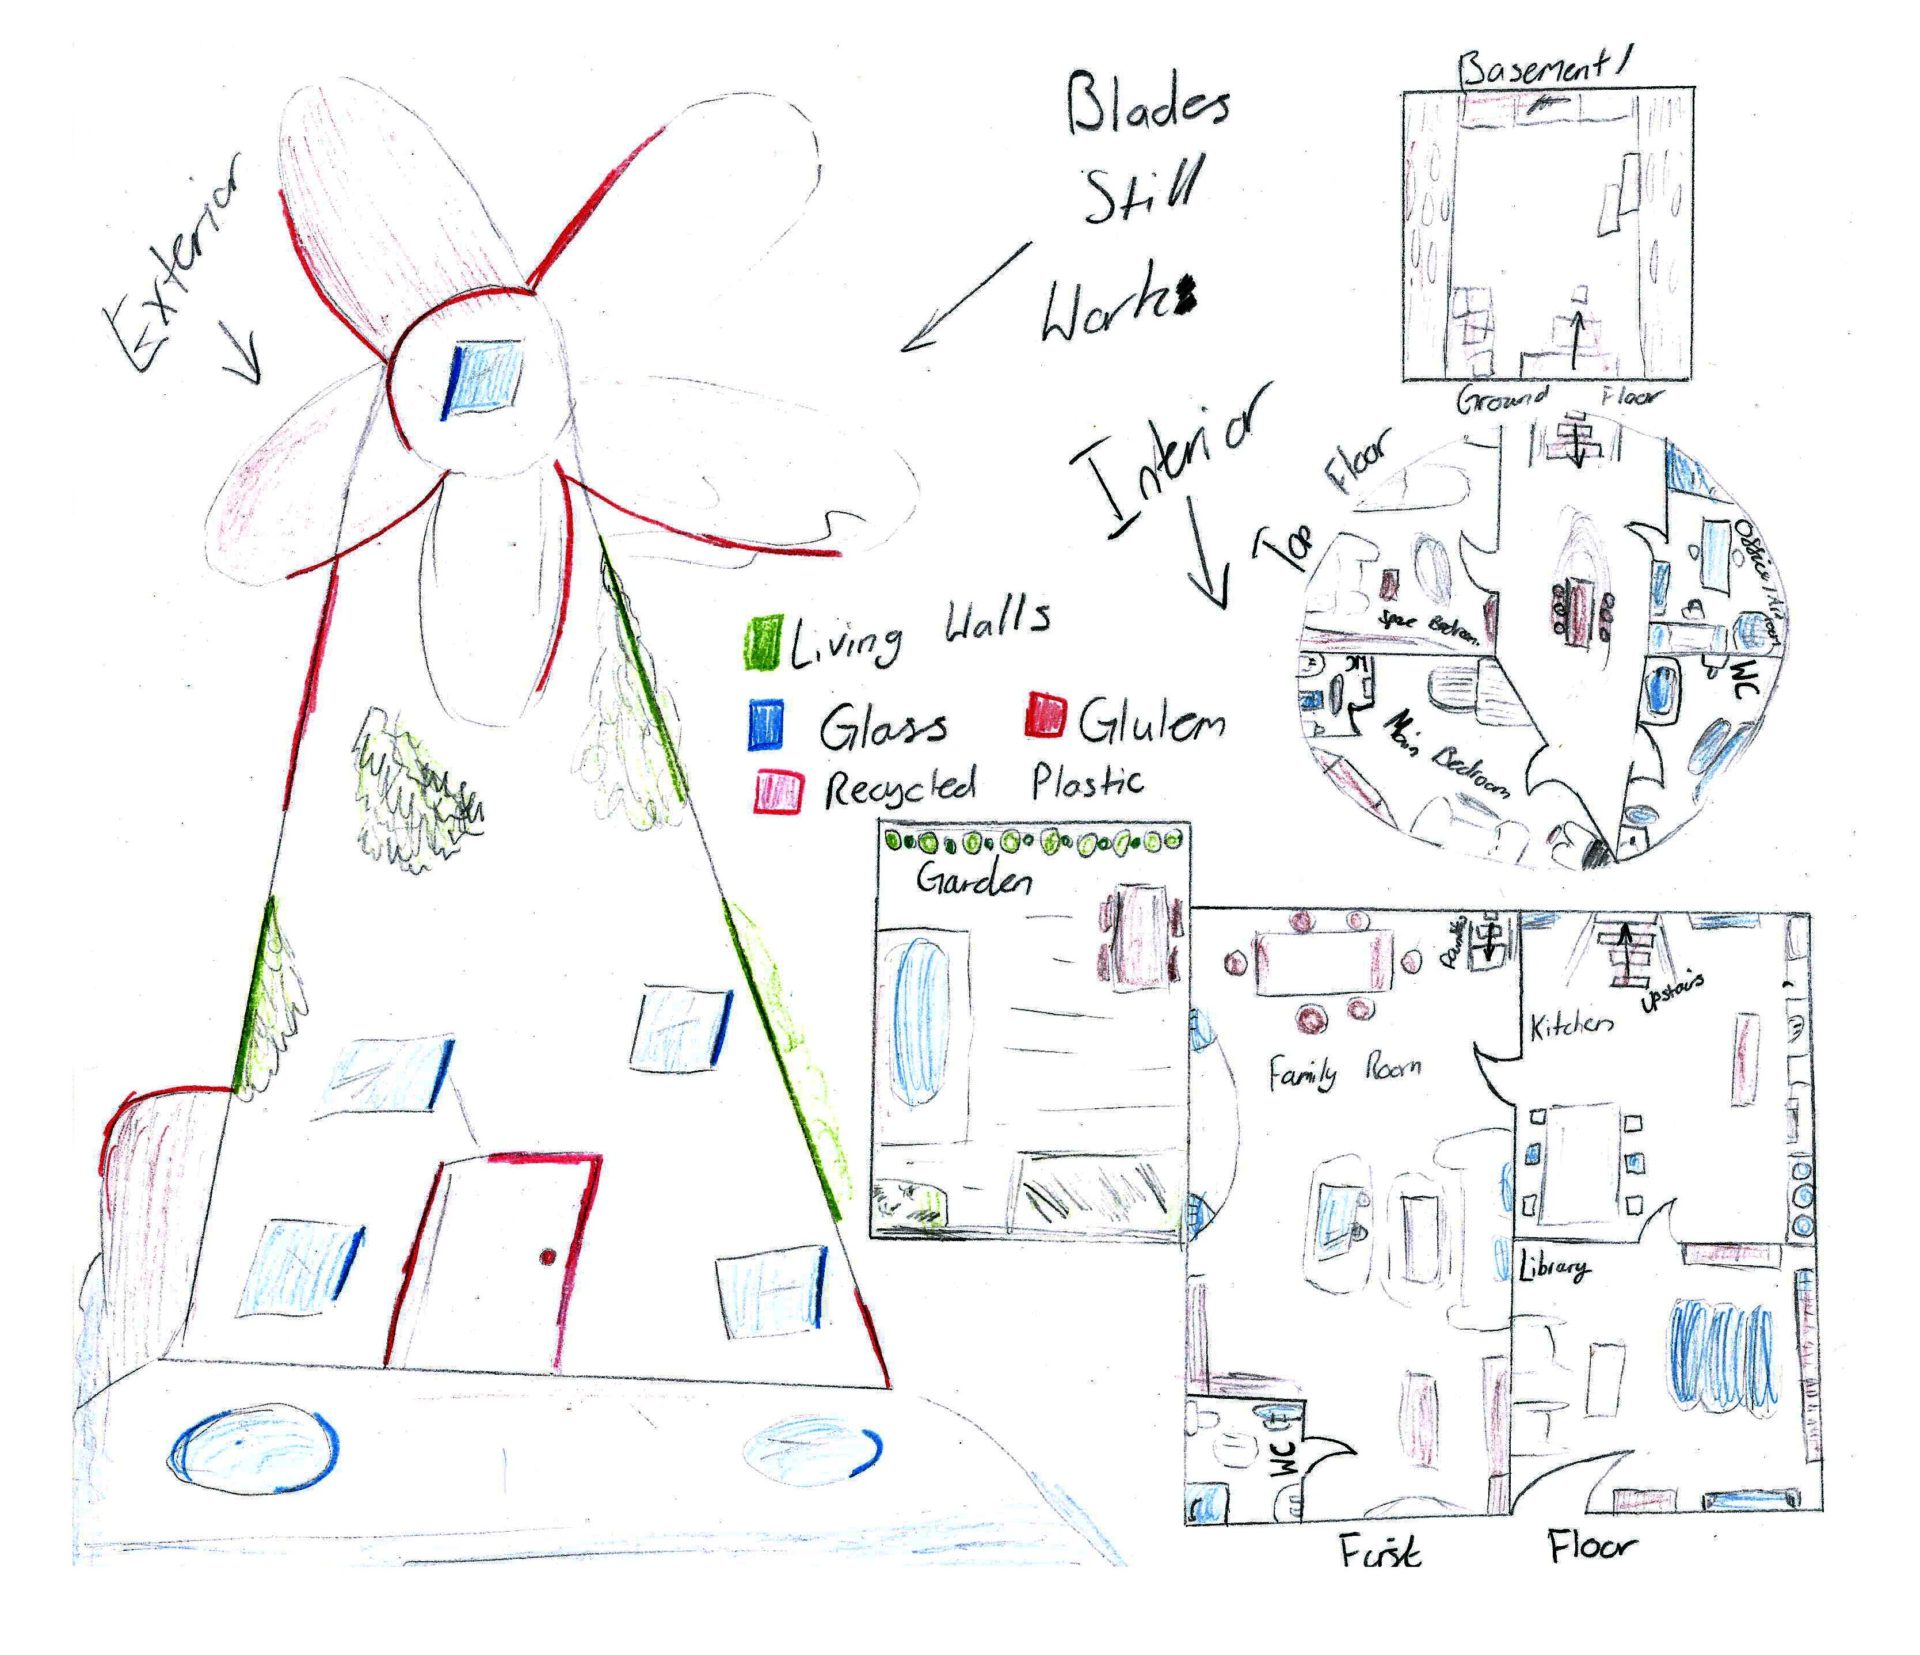 Exterior
Blades
Still
Work
Basement/
Ground Floor
Interior
Top Floor
Office/Art
room
Spare Bedroom
WC
WC
Main Bedroom
Living Walls
Glass
Glulem
Recycled Plastic
Garden
Family Room
Kitchen
Upstairs
Library
WC
First Floor